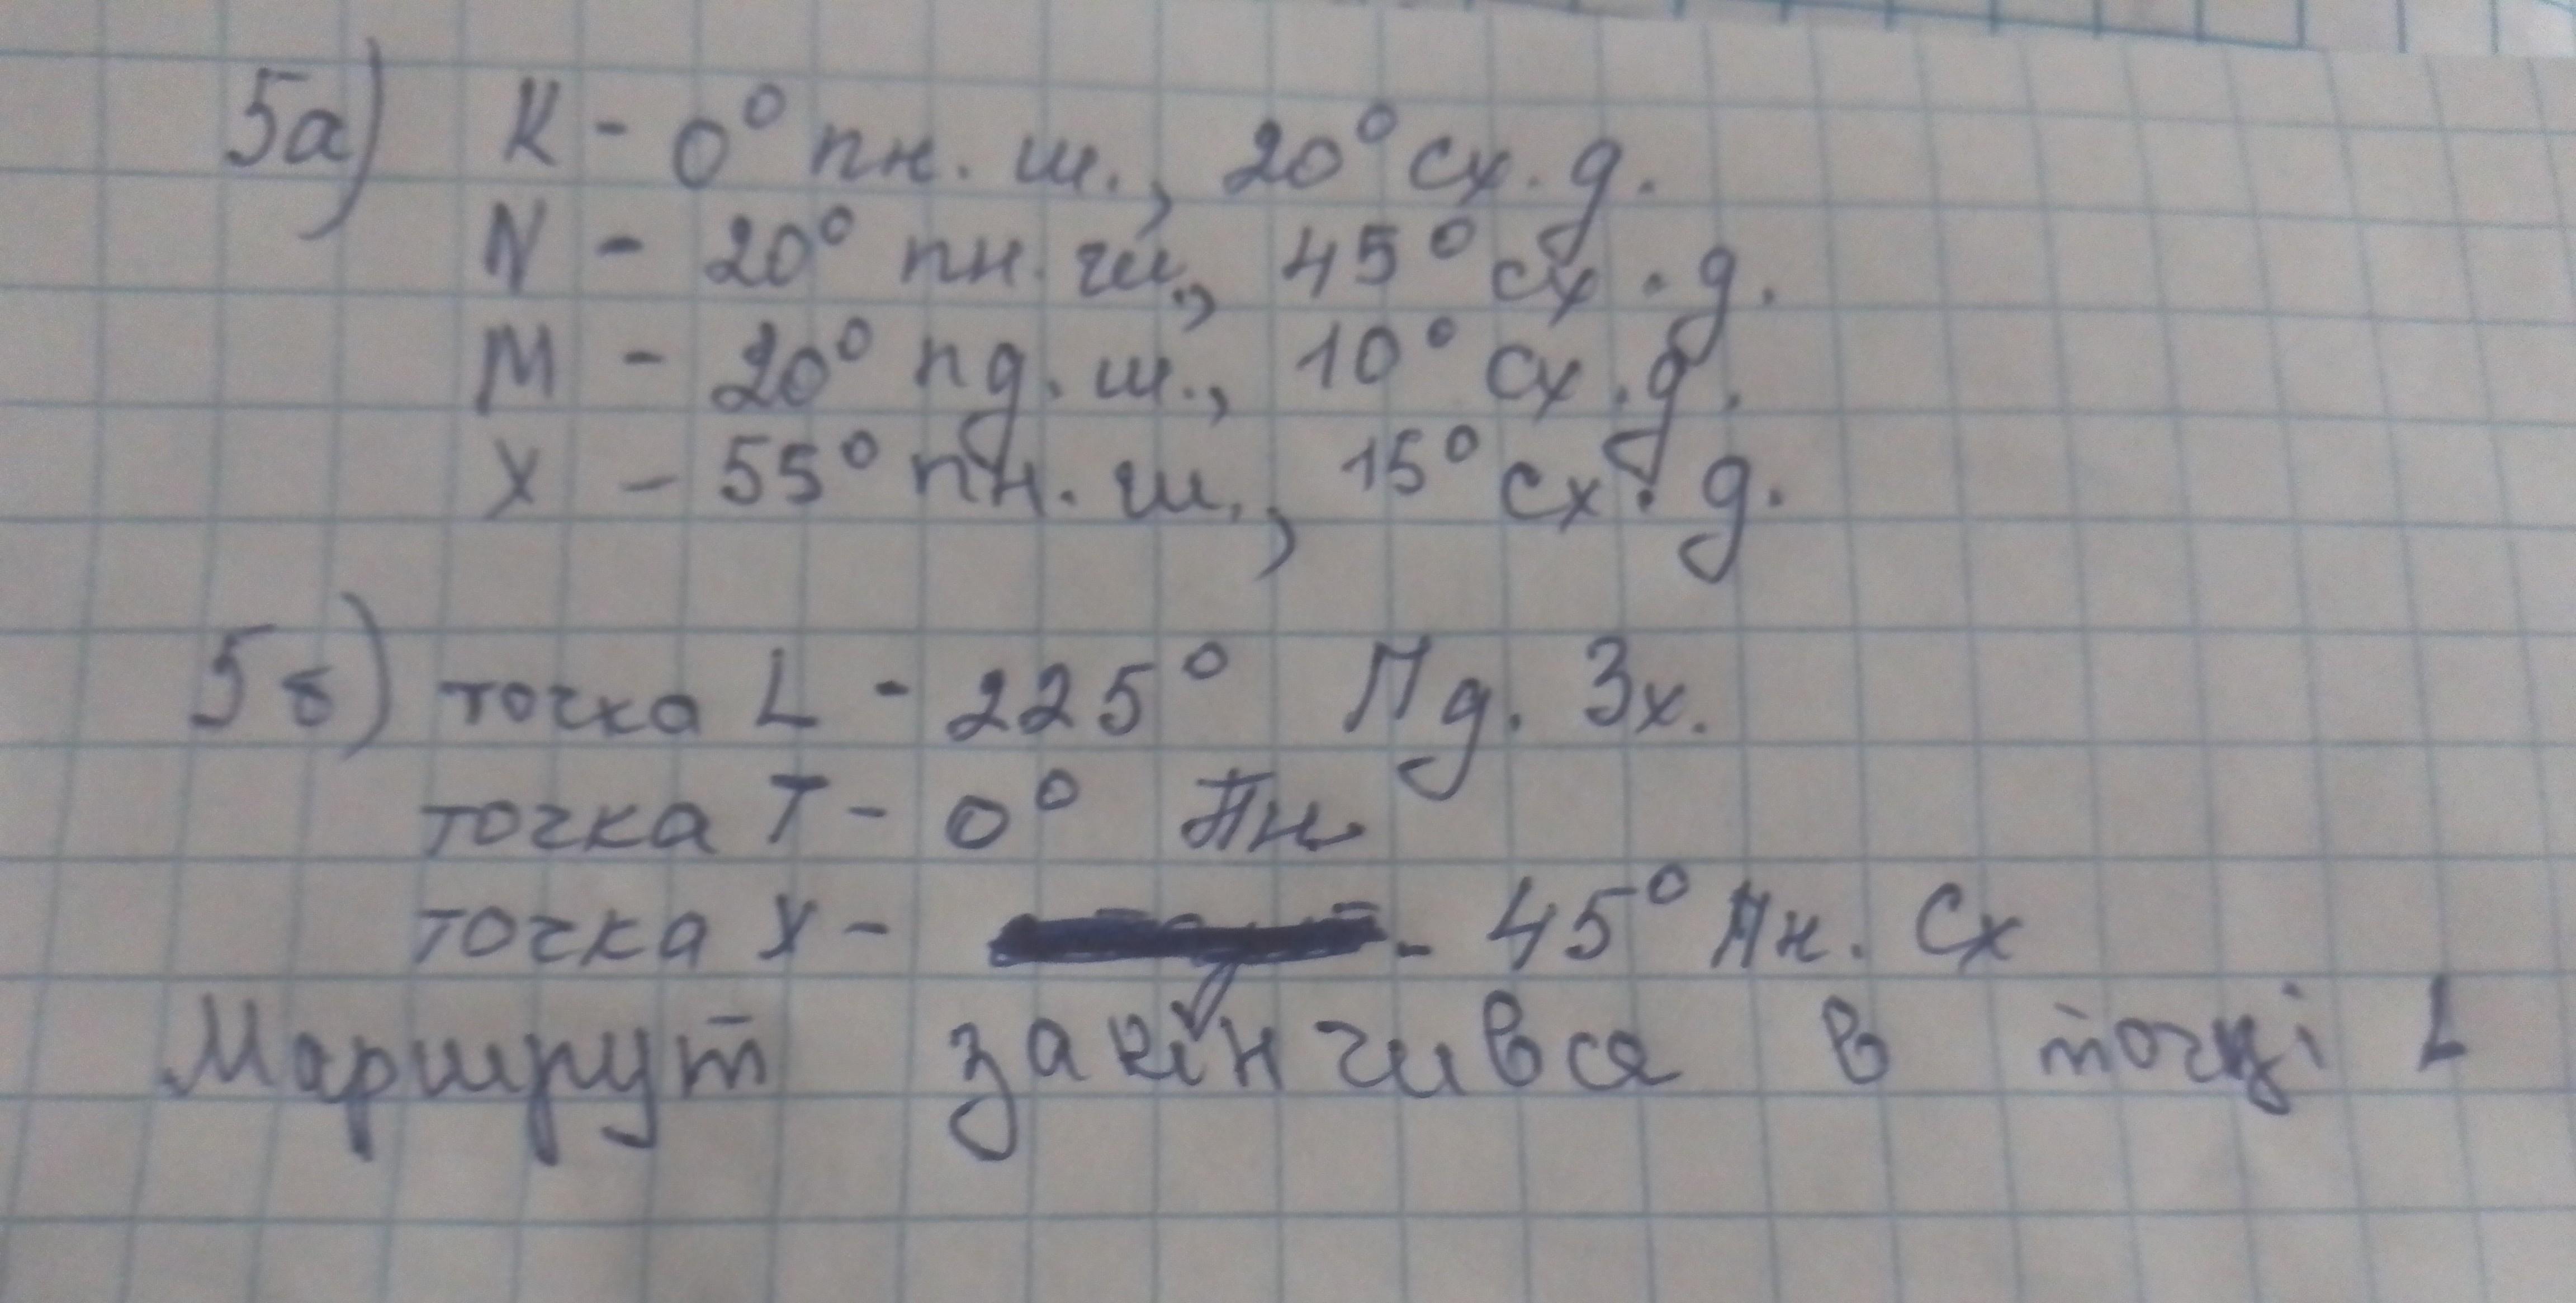 5а) K - 0° пн. ш., 20° сх. д.
N - 20° пн. ш., 45° сх. д.
M - 20° пд. ш., 10° сх. д.
X - 55° пн. ш., 15° сх. д.
5б) точка L - 225° Пд. Зх.
точка T - 0° Пн.
точка X - - 45° Пн. Сх
Маршрут закінчився в точці L